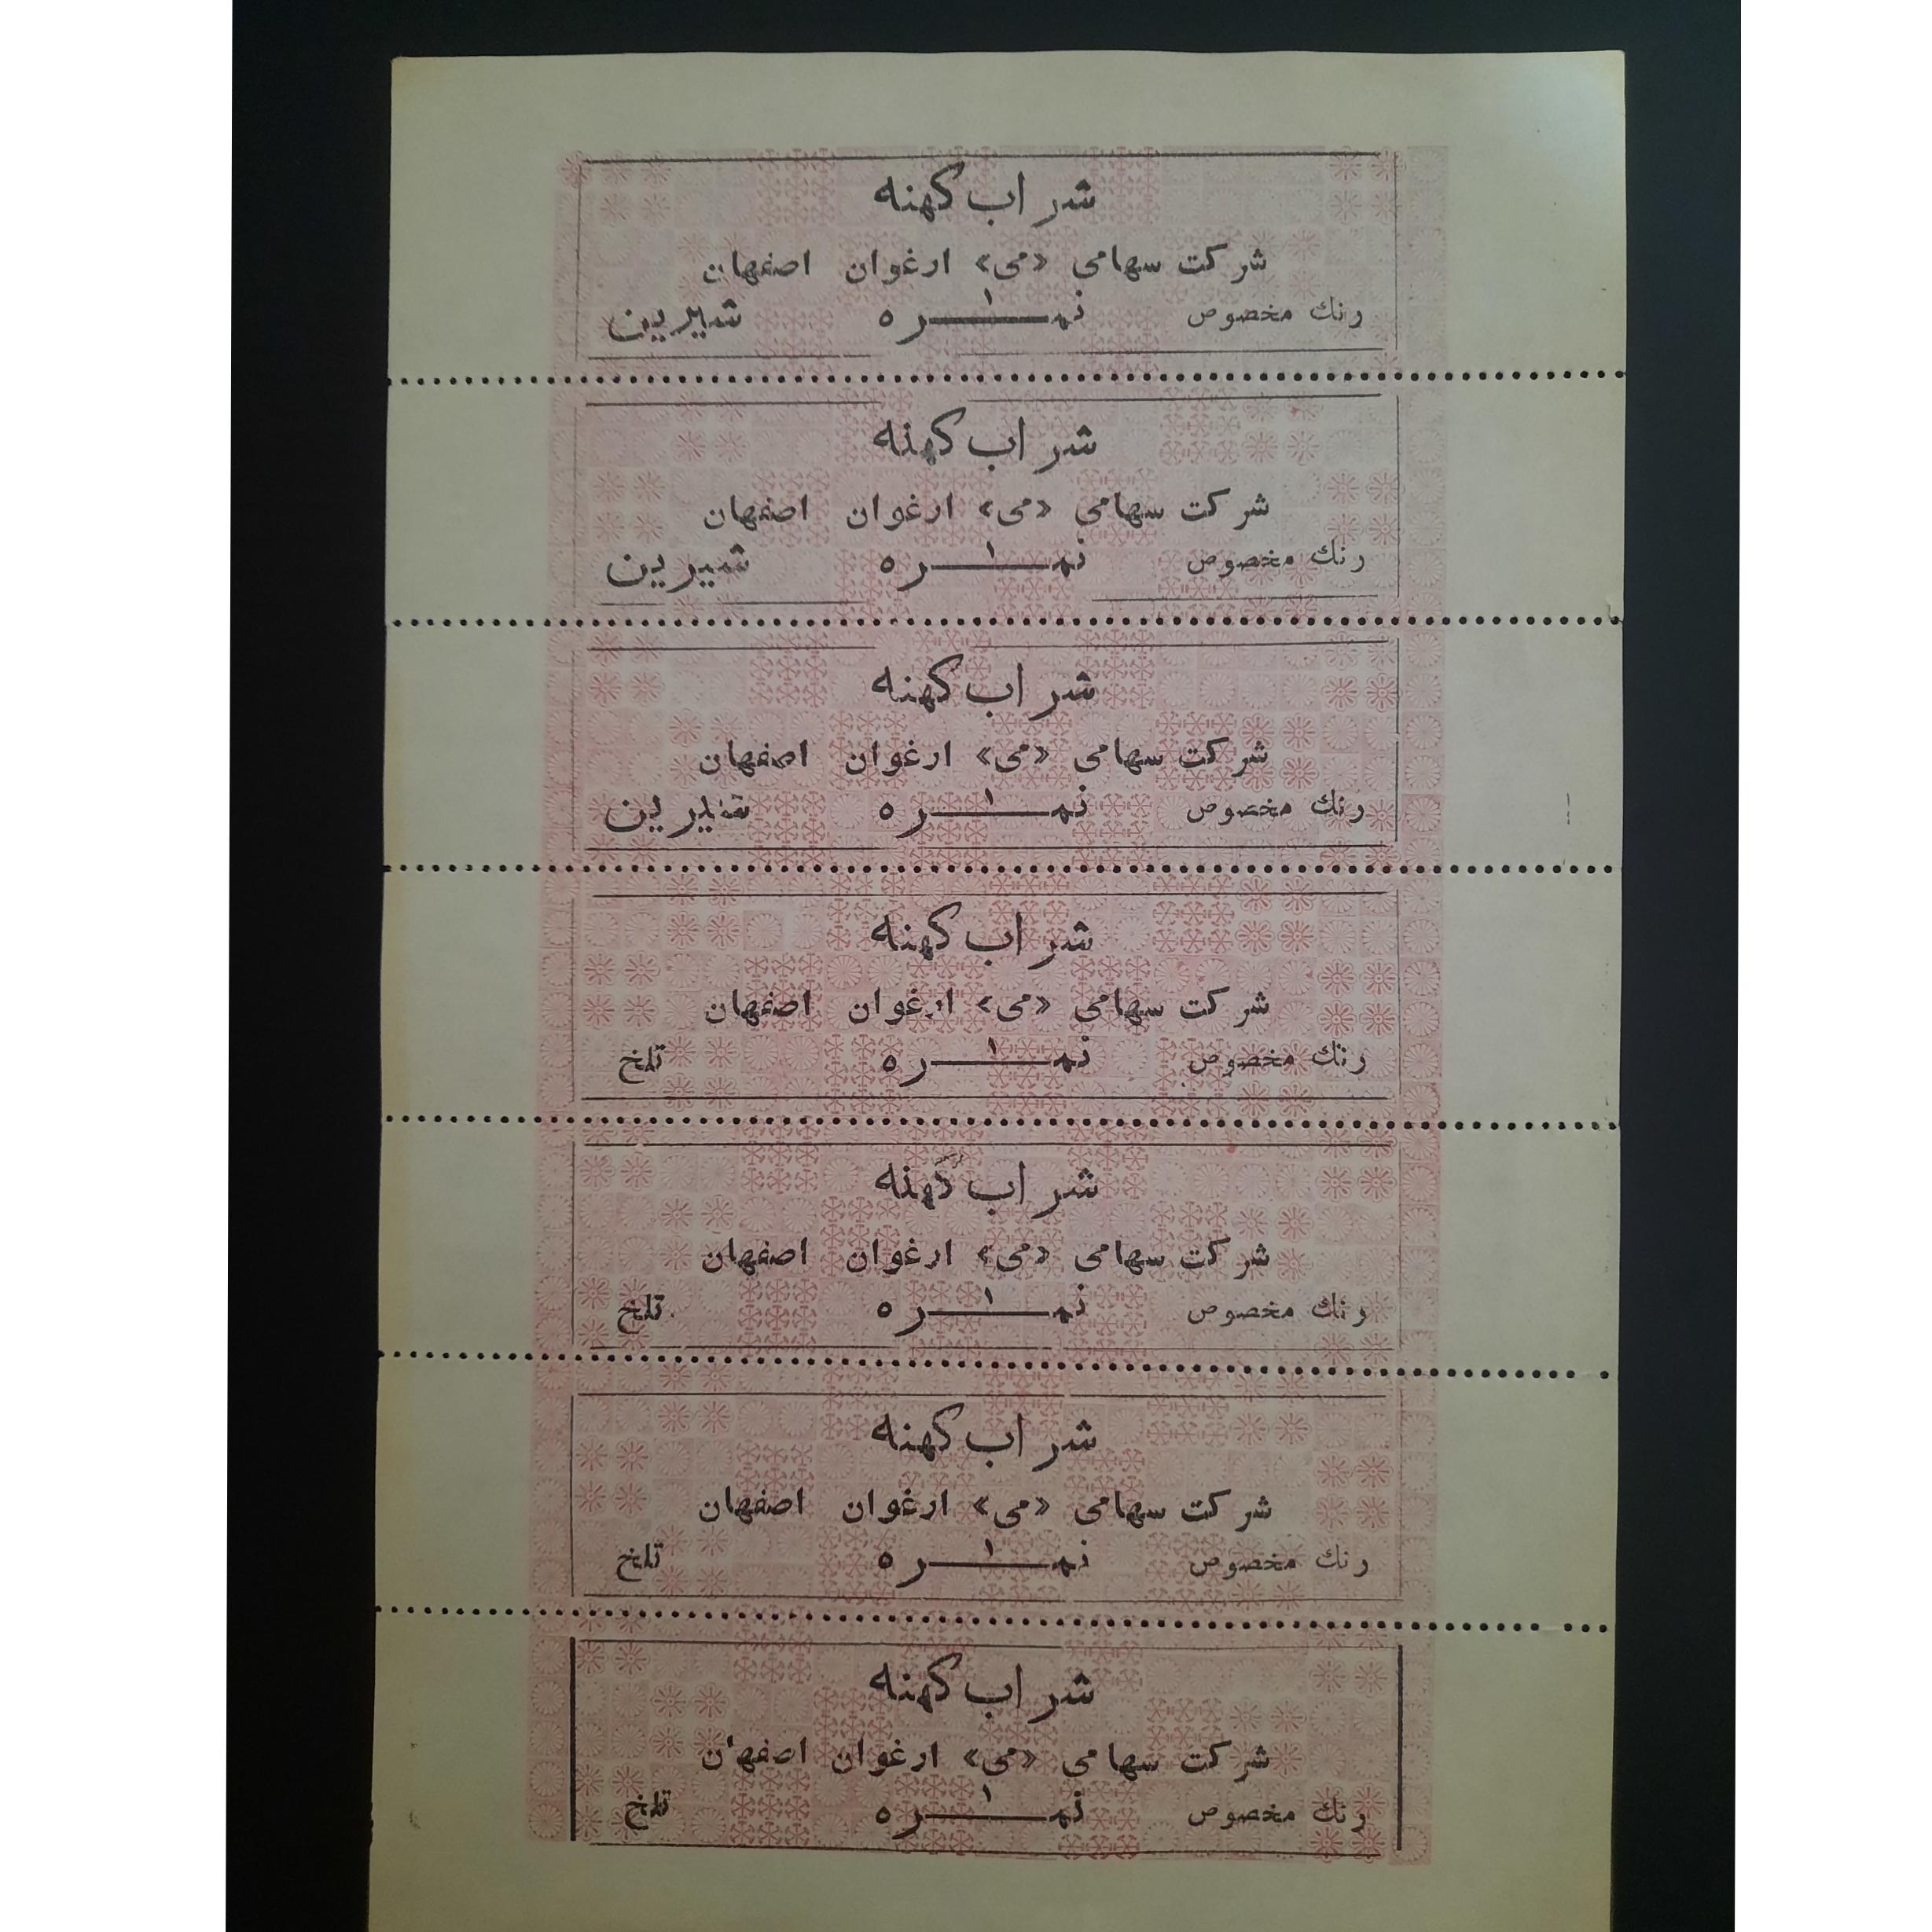 شراب کهنه
شرکت سهامی «می» ارغوان اصفهان
رنك مخصوص نمـــره ۱ شیرین
شراب کهنه
شرکت سهامی «می» ارغوان اصفهان
رنك مخصوص نمـــره ۱ شیرین
شراب کهنه
شرکت سهامی «می» ارغوان اصفهان
رنك مخصوص نمـــره ۱ شیرین
شراب کهنه
شرکت سهامی «می» ارغوان اصفهان
رنك مخصوص نمـــره ۱ تلخ
شراب کهنه
شرکت سهامی «می» ارغوان اصفهان
رنك مخصوص نمـــره ۱ تلخ
شراب کهنه
شرکت سهامی «می» ارغوان اصفهان
رنك مخصوص نمـــره ۱ تلخ
شراب کهنه
شرکت سهامی «می» ارغوان اصفهان
رنك مخصوص نمـــره ۱ تلخ